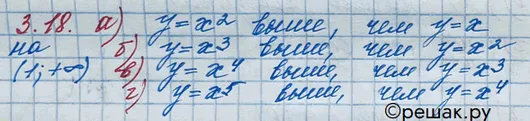 3.18. а) y=x2 выше, чем y=x
на б) y=x3 выше, чем y=x2
(1;+∞) в) y=x4 выше, чем y=x3
г) y=x5 выше, чем y=x4
©reшак.ру